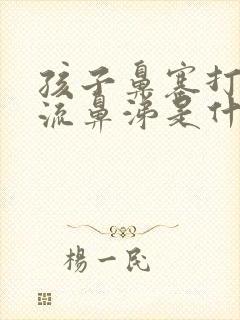 孩子鼻塞打
流鼻涕是什
楊一民